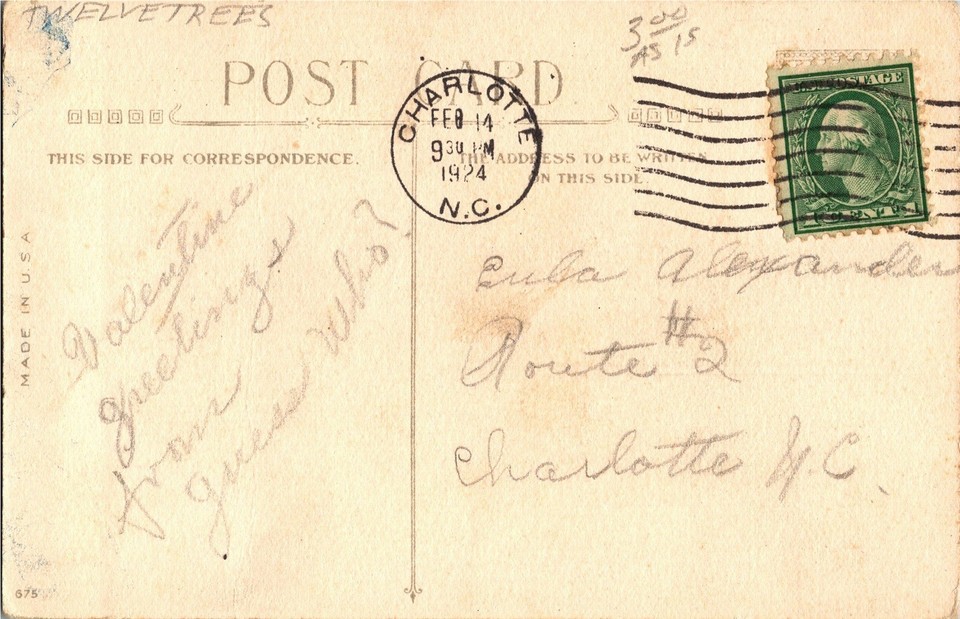 TWELVETREES
3.00
AS IS
POST CARD
CHARLOTTE
FEB 14
9 30 PM
1924
N.C.
U.S. POSTAGE
1 CENT 1
THIS SIDE FOR CORRESPONDENCE.
THE ADDRESS TO BE WRITTEN
ON THIS SIDE.
MADE IN U.S.A
Valentine
greetings
from
guess Who?
Eula Alexander
Route #2
Charlotte N.C.
675